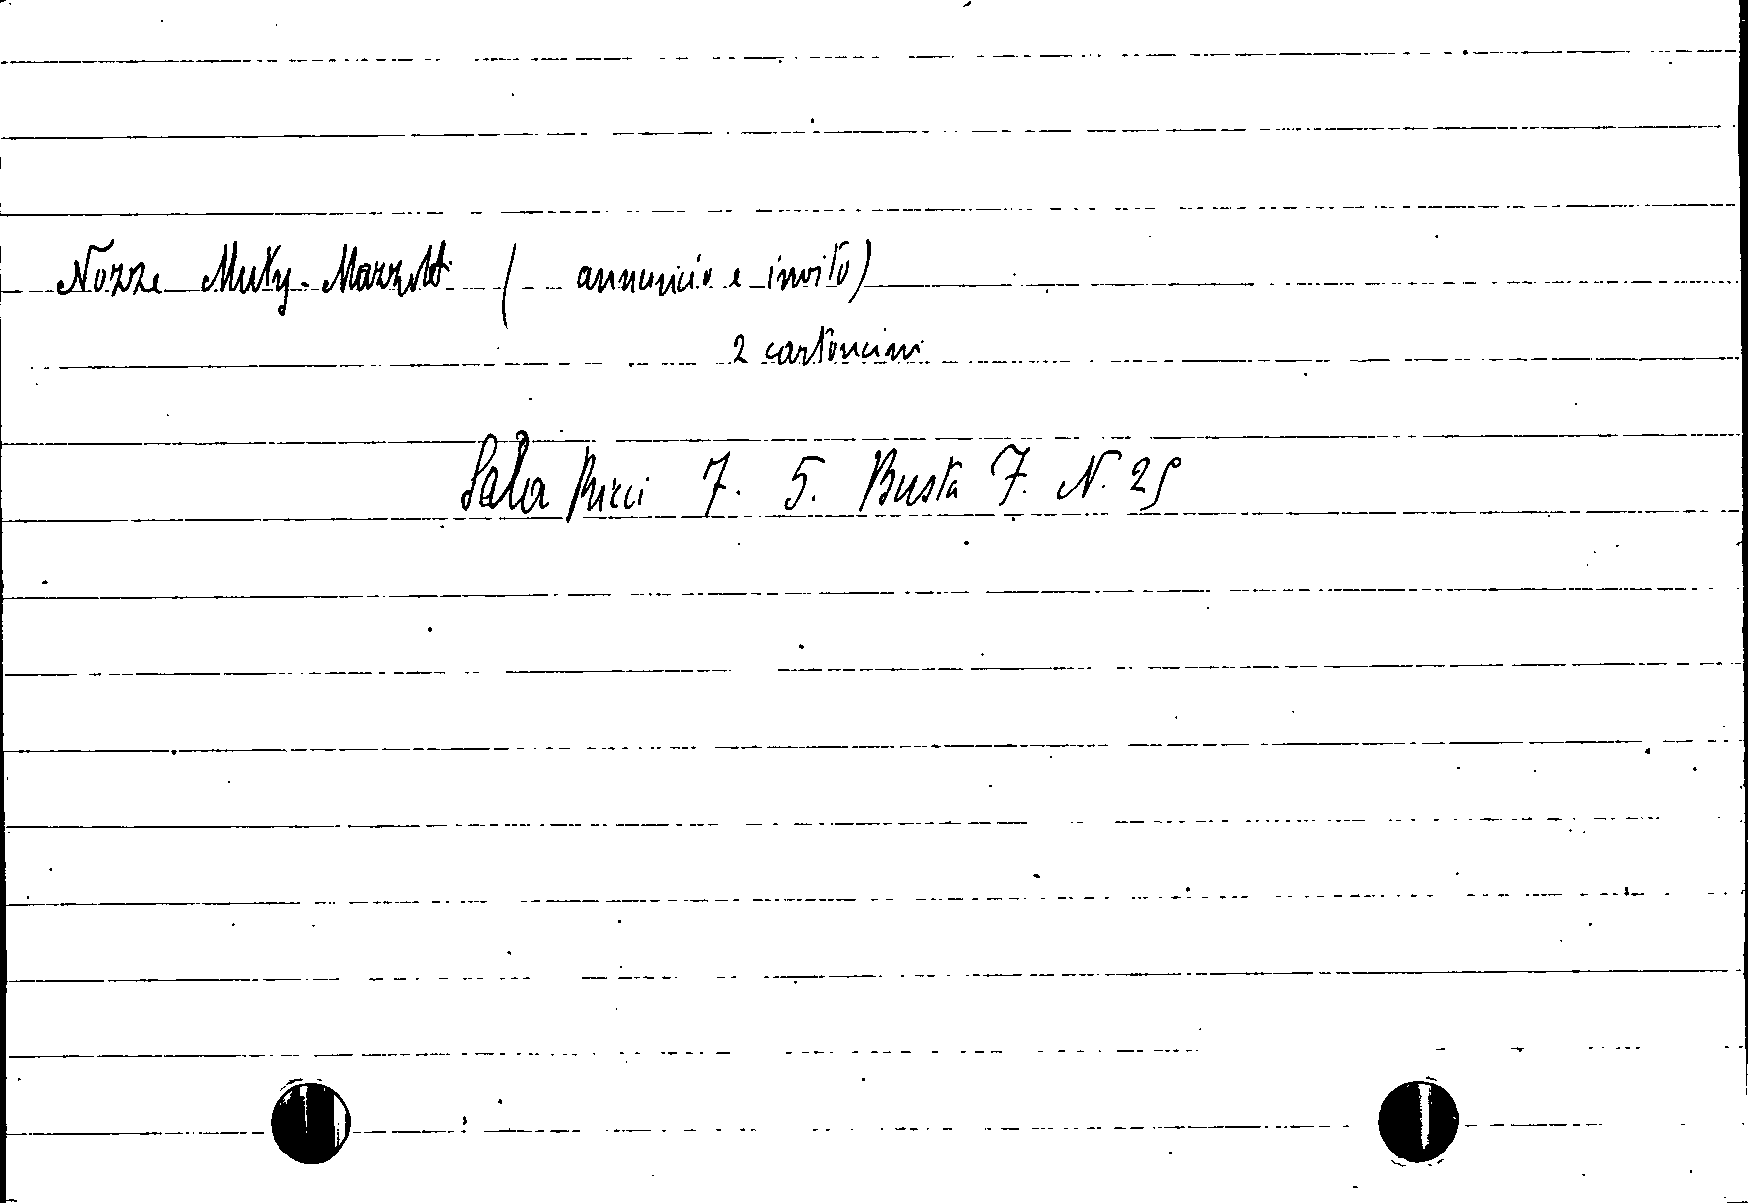 Nozze Muty-Mazzotti (annuncio e invito)
2 cartoncini
Sala Ricci 7. 5. Busta 7. N. 25